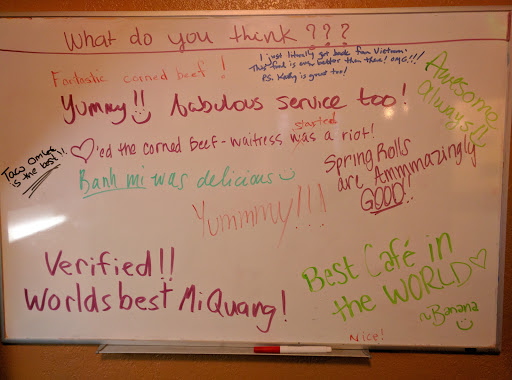 What do you think ???
I just literally got back from Vietnam.
This food is even better than there! omg!!!
P.S. Kelly is great too!
Fantastic corned beef!
Awesome
always!!
Yummy!! fabulous service too!
started
♡'ed the Corned Beef - waitress was a riot!
Taco omlet
is the best!!
Spring Rolls
are Ammmazingly
GOOD!!
Banh mi was delicious
Yummmy!!!
Best Café in
the WORLD ♡
~Banana
Verified!!
Worlds best Mi Quang!
Nice!